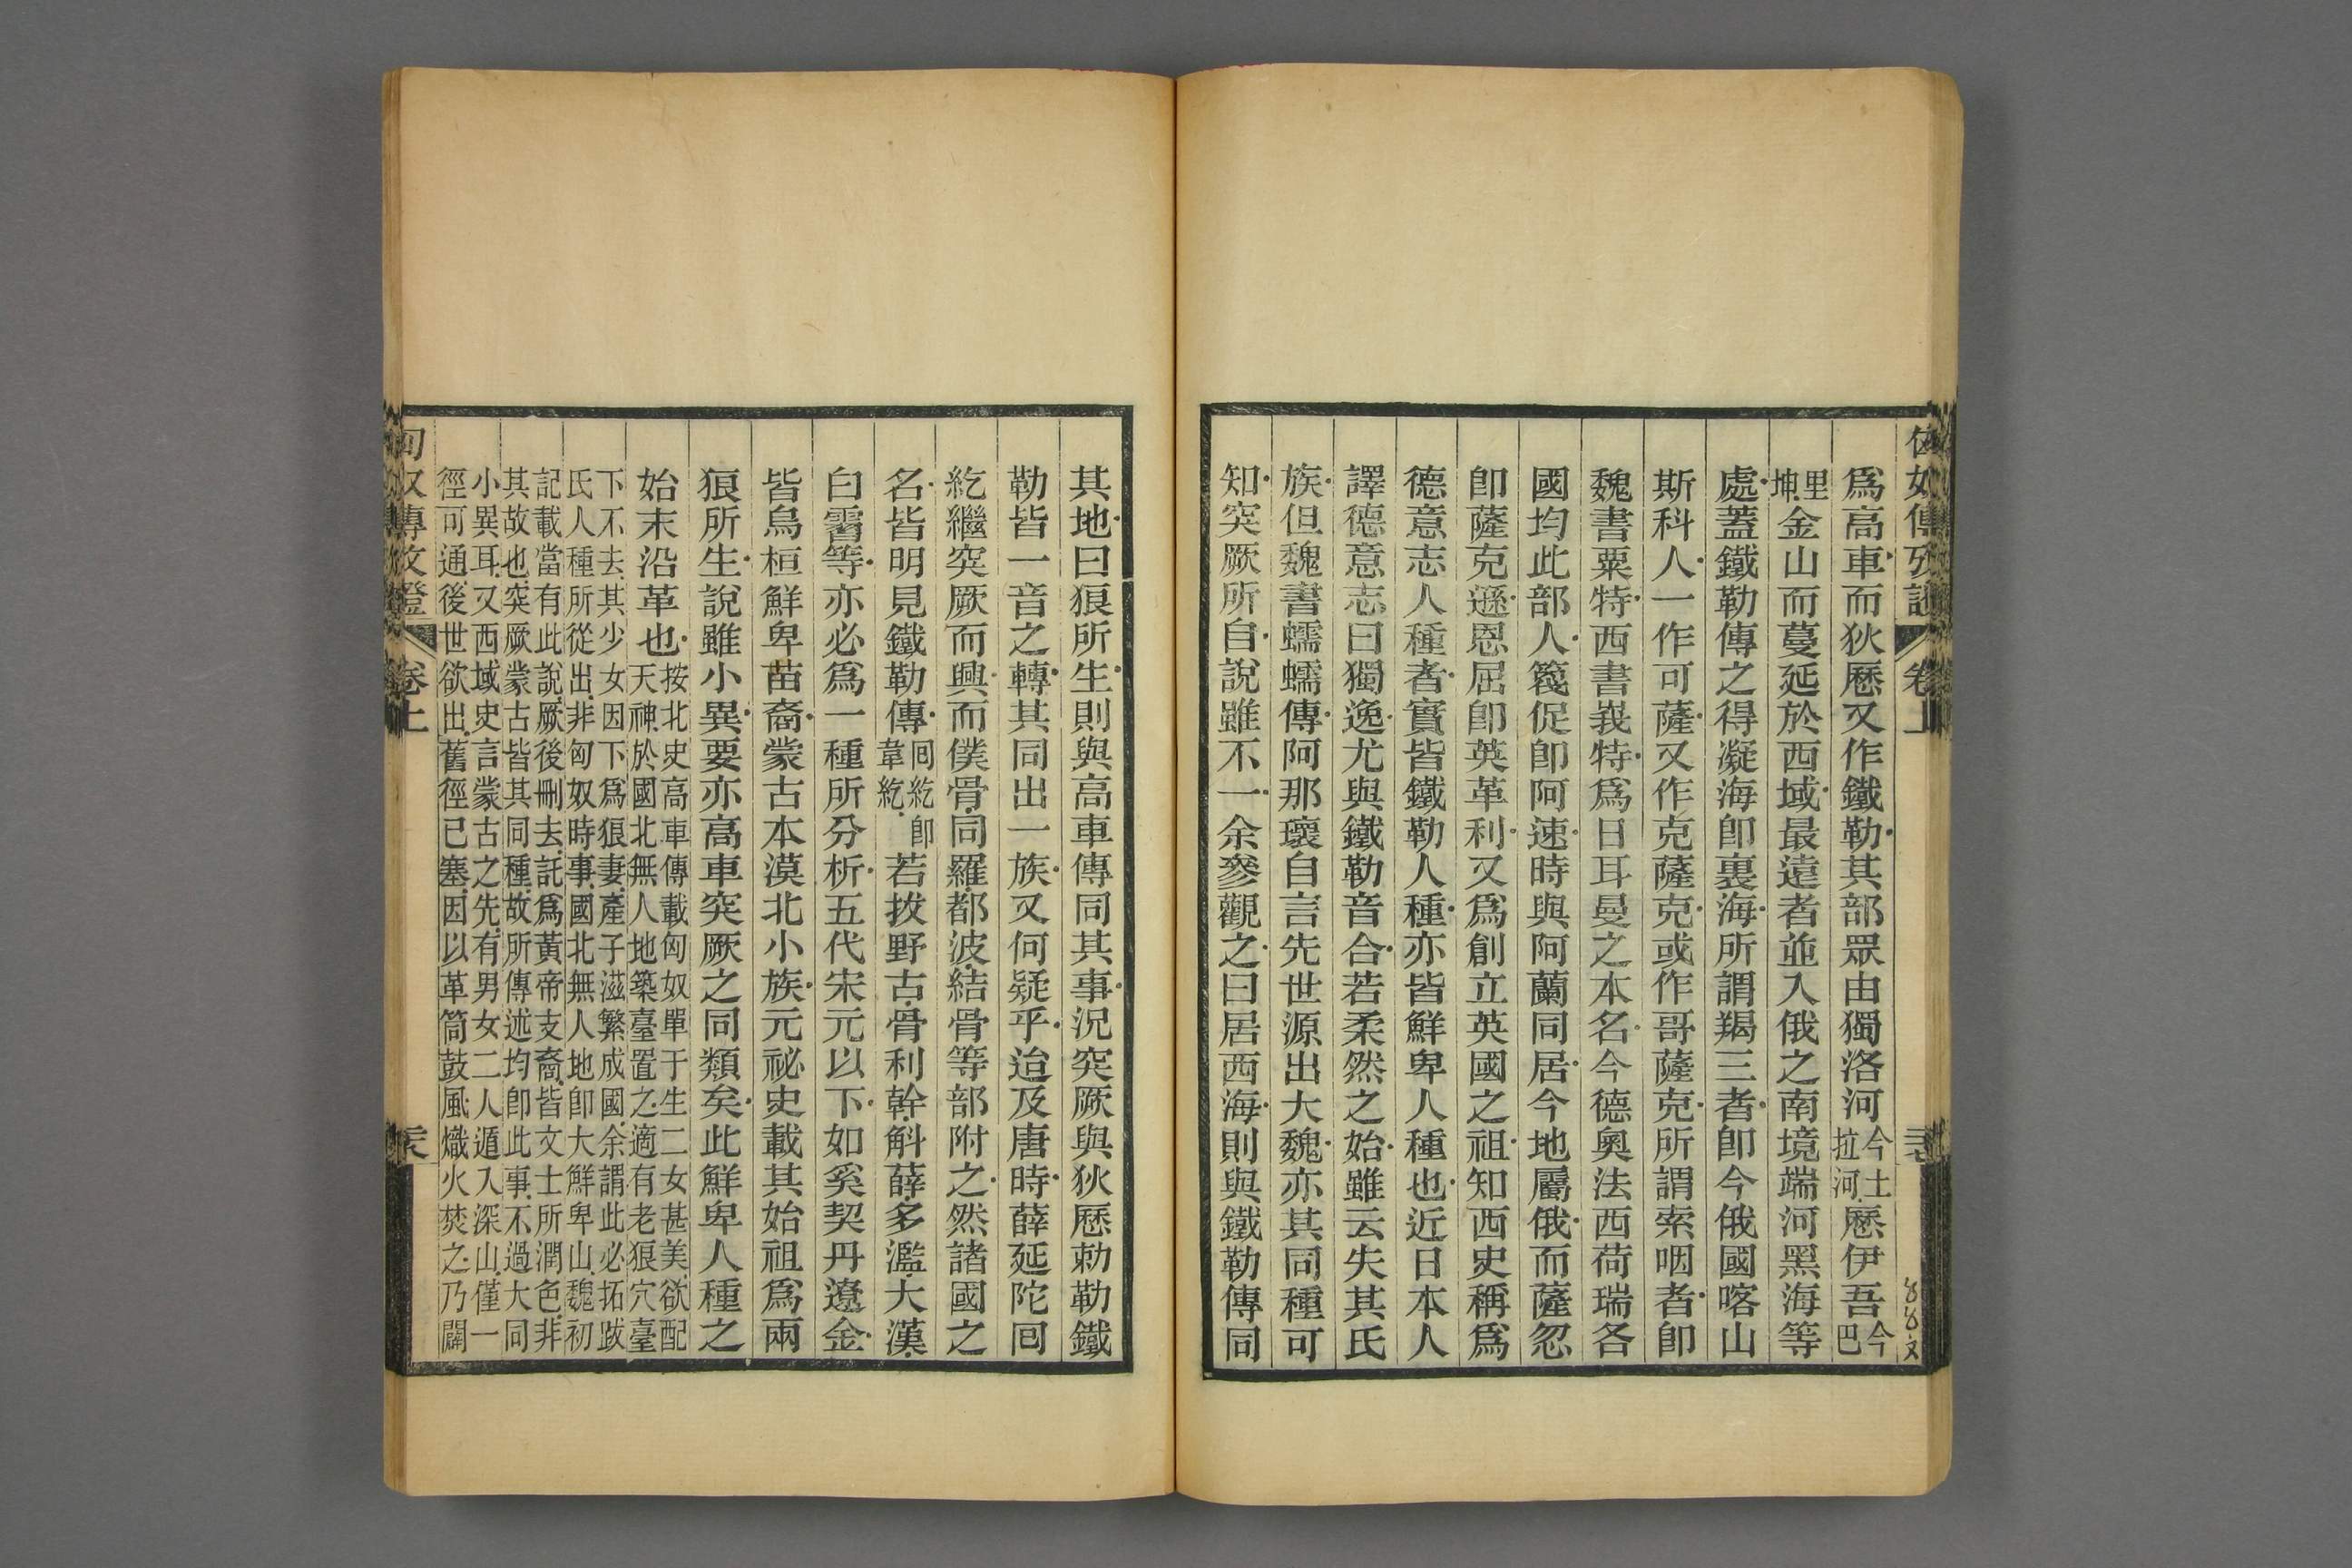 爲高車而狄歷又作鐵勒其部眾由獨洛河今土拉河歷伊吾今巴
里坤金山而蔓延於西域最遠者並入俄之南境端河黑海等
處蓋鐵勒傳之得凝海卽裏海所謂羯三者卽今俄國喀山
斯科人一作可薩又作克薩克或作哥薩克所謂索咽者卽
魏書粟特西書峩特爲日耳曼之本名今德奧法西荷瑞各
國均此部人篯促卽阿速時與阿蘭同居今地屬俄而薩忽
卽薩克遜恩屈卽英革利又爲創立英國之祖知西史稱爲
德意志人種者實皆鐵勒人種亦皆鮮卑人種也近日本人
譯德意志曰獨逸尤與鐵勒音合若柔然之始雖云失其氏
族但魏書蠕蠕傳阿那瓌自言先世源出大魏亦其同種可
知突厥所自說雖不一余參觀之曰居西海則與鐵勒傳同
其地曰狼所生則與高車傳同其事況突厥與狄歷勅勒鐵
勒皆一音之轉其同出一族又何疑乎迨及唐時薛延陀囘
紇繼突厥而興而僕骨同羅都波結骨等部附之然諸國之
名皆明見鐵勒傳囘紇卽韋紇若拔野古骨利幹斛薛多濫大漢
白霫等亦必爲一種所分析五代宋元以下如奚契丹遼金
皆烏桓鮮卑苗裔蒙古本漠北小族元祕史載其始祖爲兩
狼所生說雖小異要亦高車突厥之同類矣此鮮卑人種之
始末沿革也按北史高車傳載匈奴單于生二女甚美欲配
天神於國北無人地築臺置之適有老狼穴臺
下不去其少女因下爲狼妻產子滋繁成國余謂此必拓跋
氏人種所從出非匈奴時事國北無人地卽大鮮卑山魏初
記載當有此說厥後刪去託爲黃帝支裔皆文士所潤色非
其故也突厥蒙古皆其同種故所傳述均卽此事不過大同
小異耳又西域史言蒙古之先有男女二人遁入深山僅一
徑可通後世欲出舊徑已塞因以革筒鼓風熾火焚之乃闢
卷上